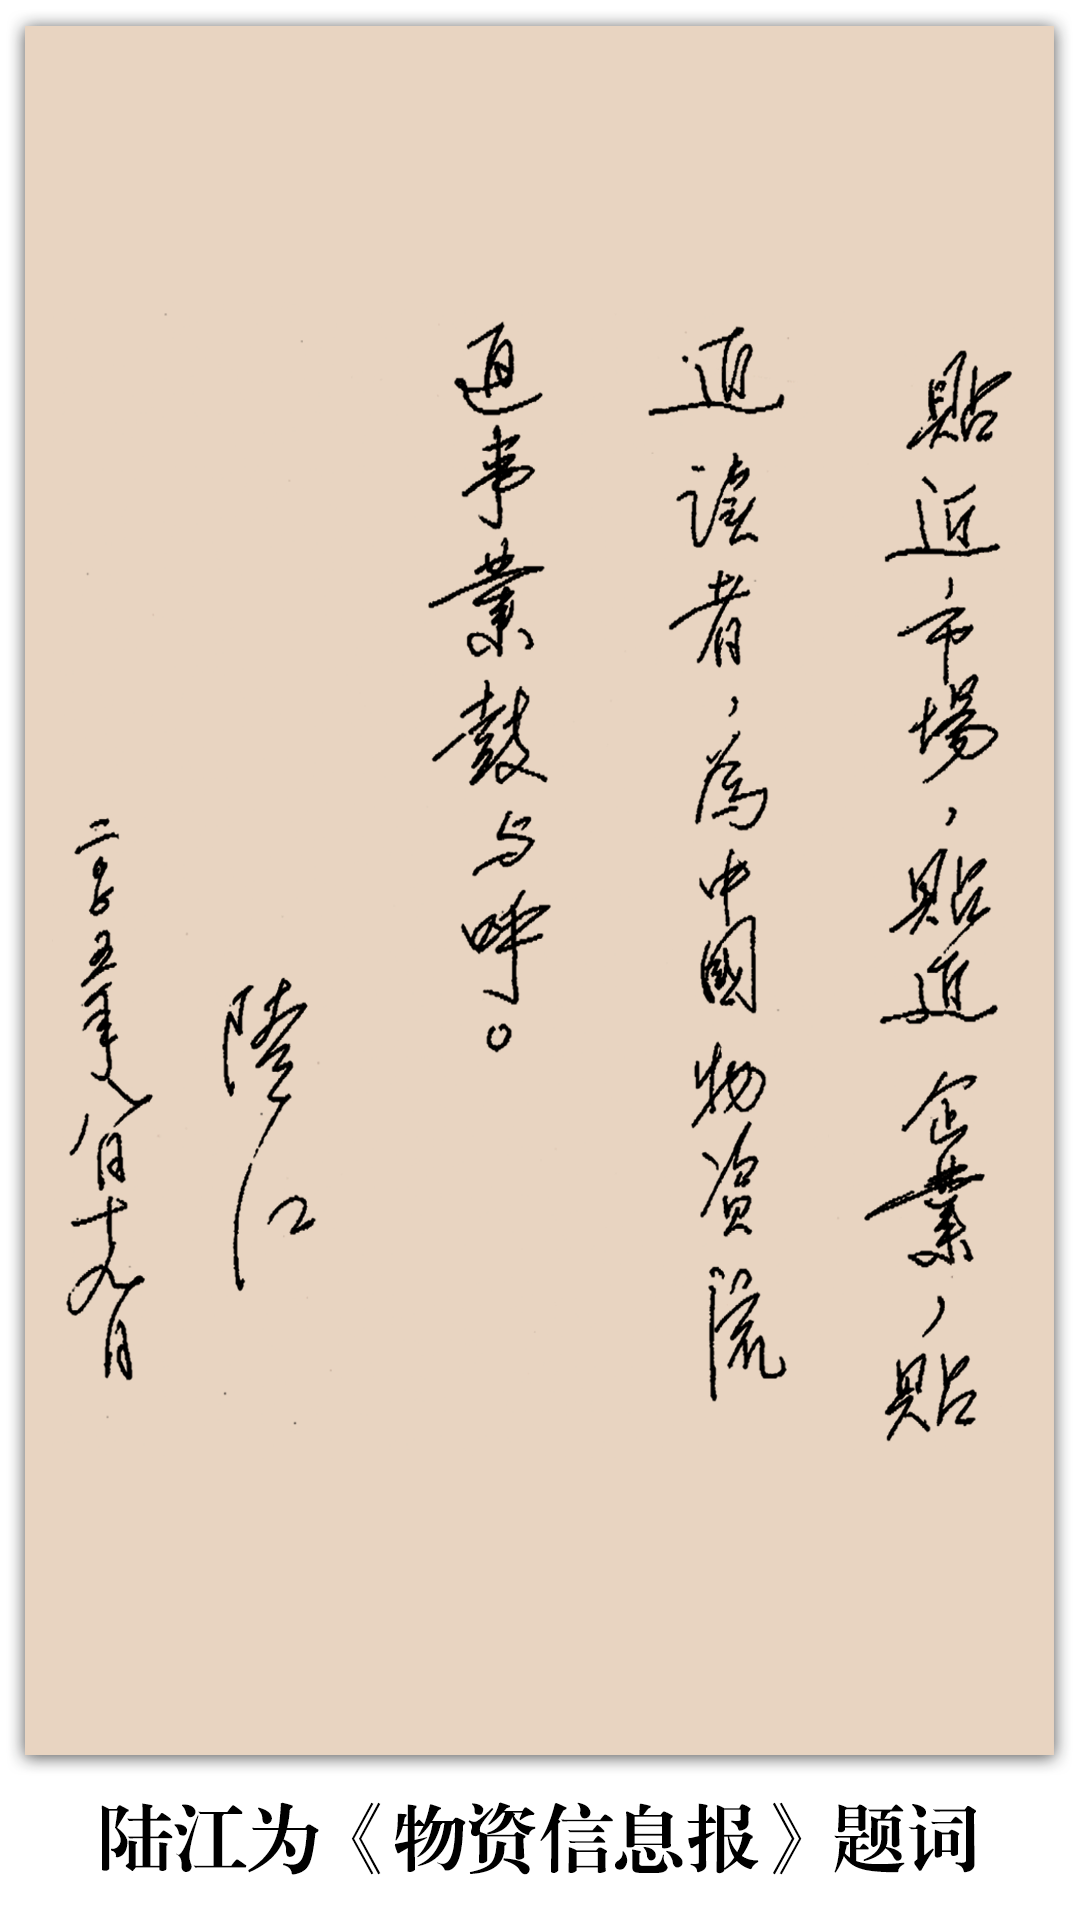 貼近市場，貼近企業，貼
近读者，為中國物資流
通事業鼓与呼。
陸江
二〇〇五年八月十九日
陆江为《物资信息报》题词